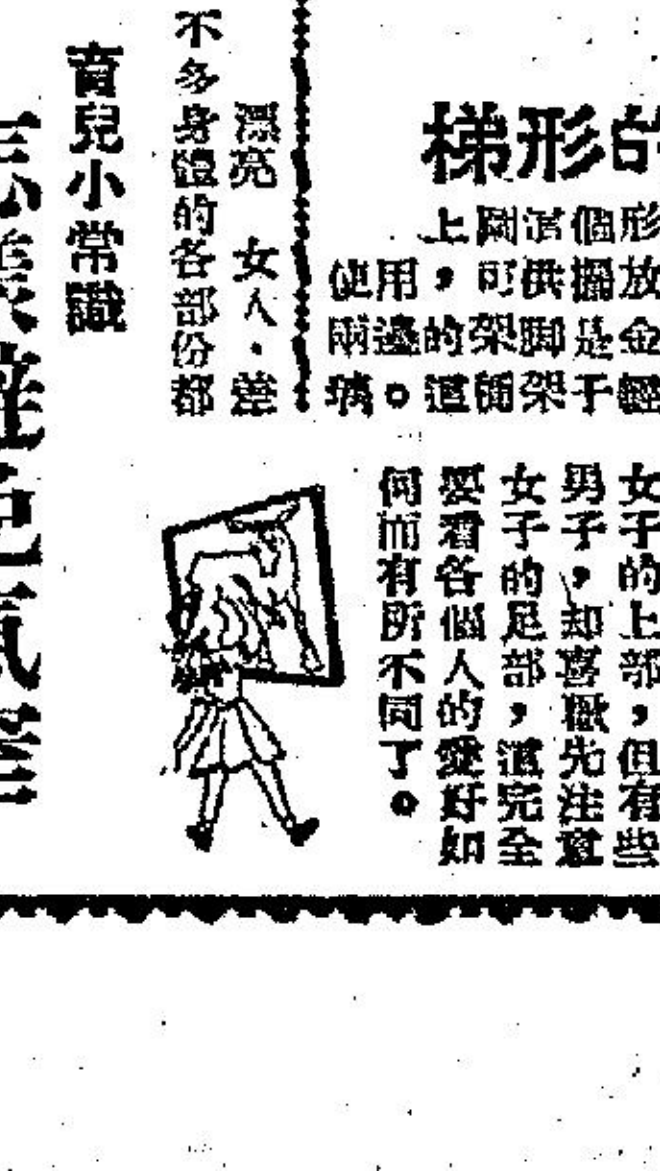 梯形的
上圖這個形
使用，可供擺放
兩邊的架脚是金
璃。這個架子輕
女子的上部，但有些
男子，却喜歡先注意
女子的足部，這完全
要看各個人的愛好如
何而有所不同了。
漂亮　女人・差
不多身體的各部份都
育兒小常識